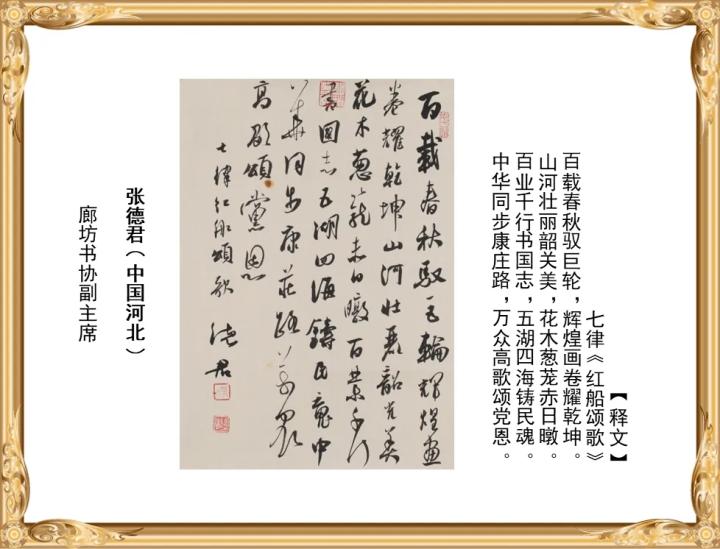 【释文】
七律《红船颂歌》
百载春秋驭巨轮，辉煌画卷耀乾坤。
山河壮丽韶关美，花木葱茏赤日暾。
百业千行书国志，五湖四海铸民魂。
中华同步康庄路，万众高歌颂党恩。
百载春秋驭巨轮辉煌画
卷耀乾坤山河壮丽韶关美
花木葱茏赤日暾百業千行
書國志五湖四海鑄民魂中
華同步康莊路萬眾
高歌頌黨恩
七律红船頌歌 德君
张德君（中国河北）
廊坊书协副主席